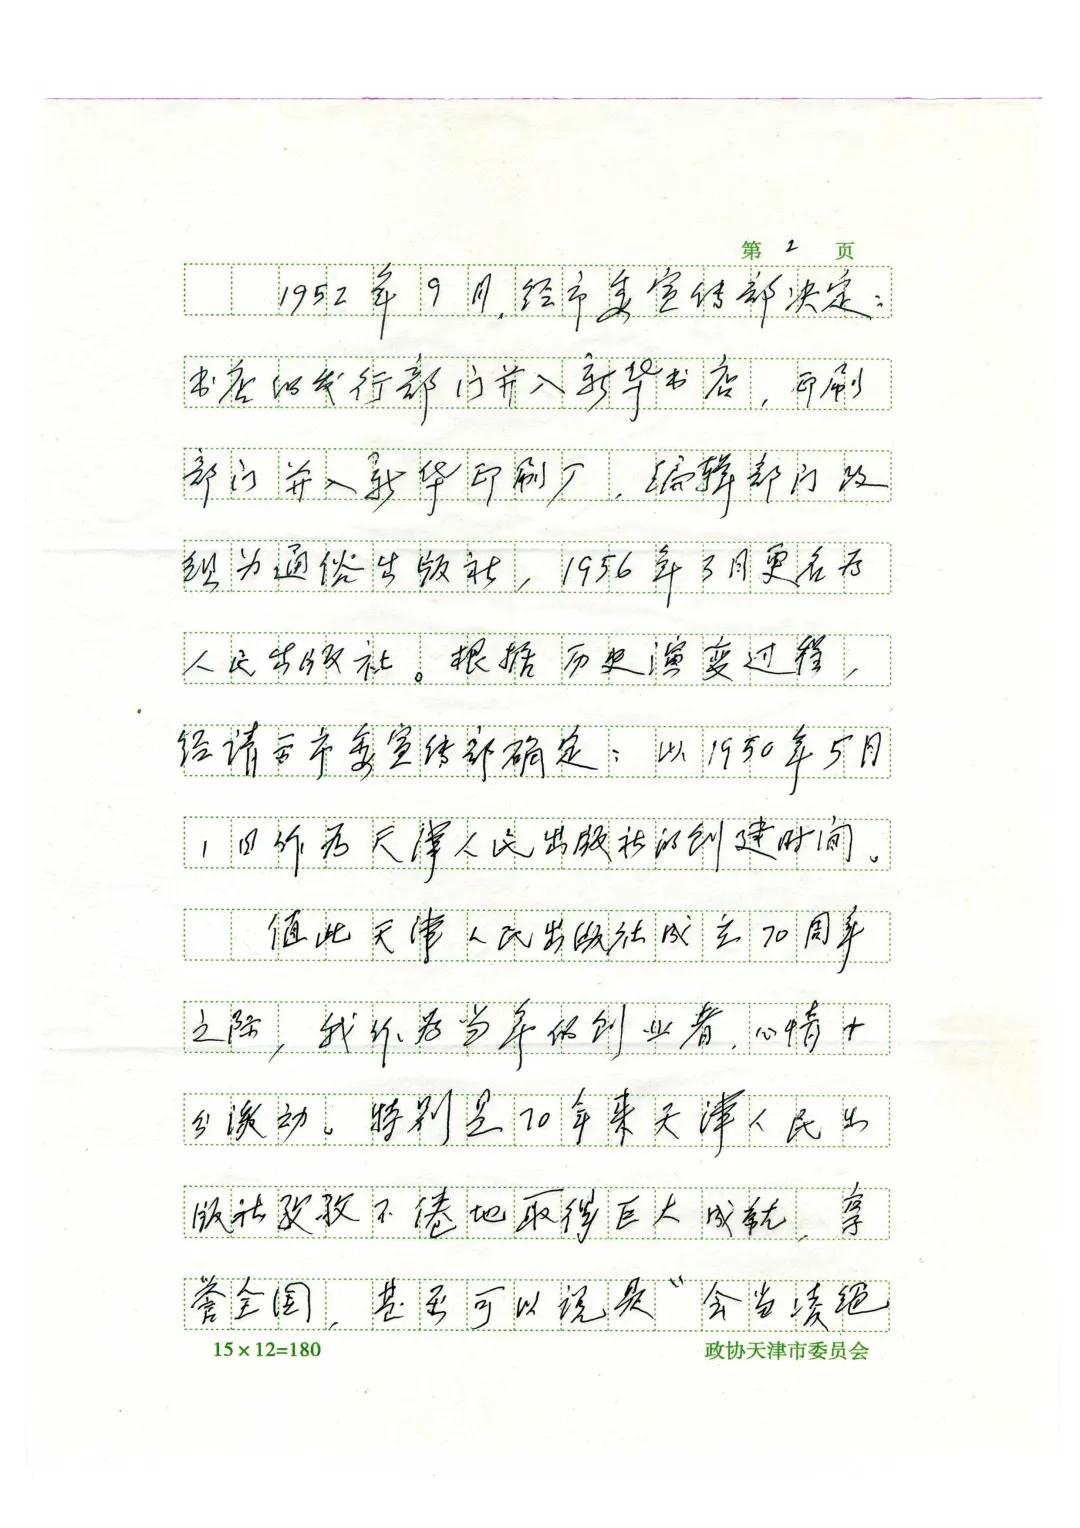 第 2 页
1952年9月，经市委宣传部决定：
书店的发行部门并入新华书店，印刷
部门并入新华印刷厂，编辑部门改
组为通俗出版社，1956年3月更名为
人民出版社。根据历史演变过程，
经请示市委宣传部确定：以1950年5月
1日作为天津人民出版社的创建时间。
值此天津人民出版社成立70周年
之际，我作为当年的创业者，心情十
分激动。特别是70年来天津人民出
版社孜孜不倦地取得巨大成就，享
誉全国，甚至可以说是“会当凌绝
15×12=180 政协天津市委员会